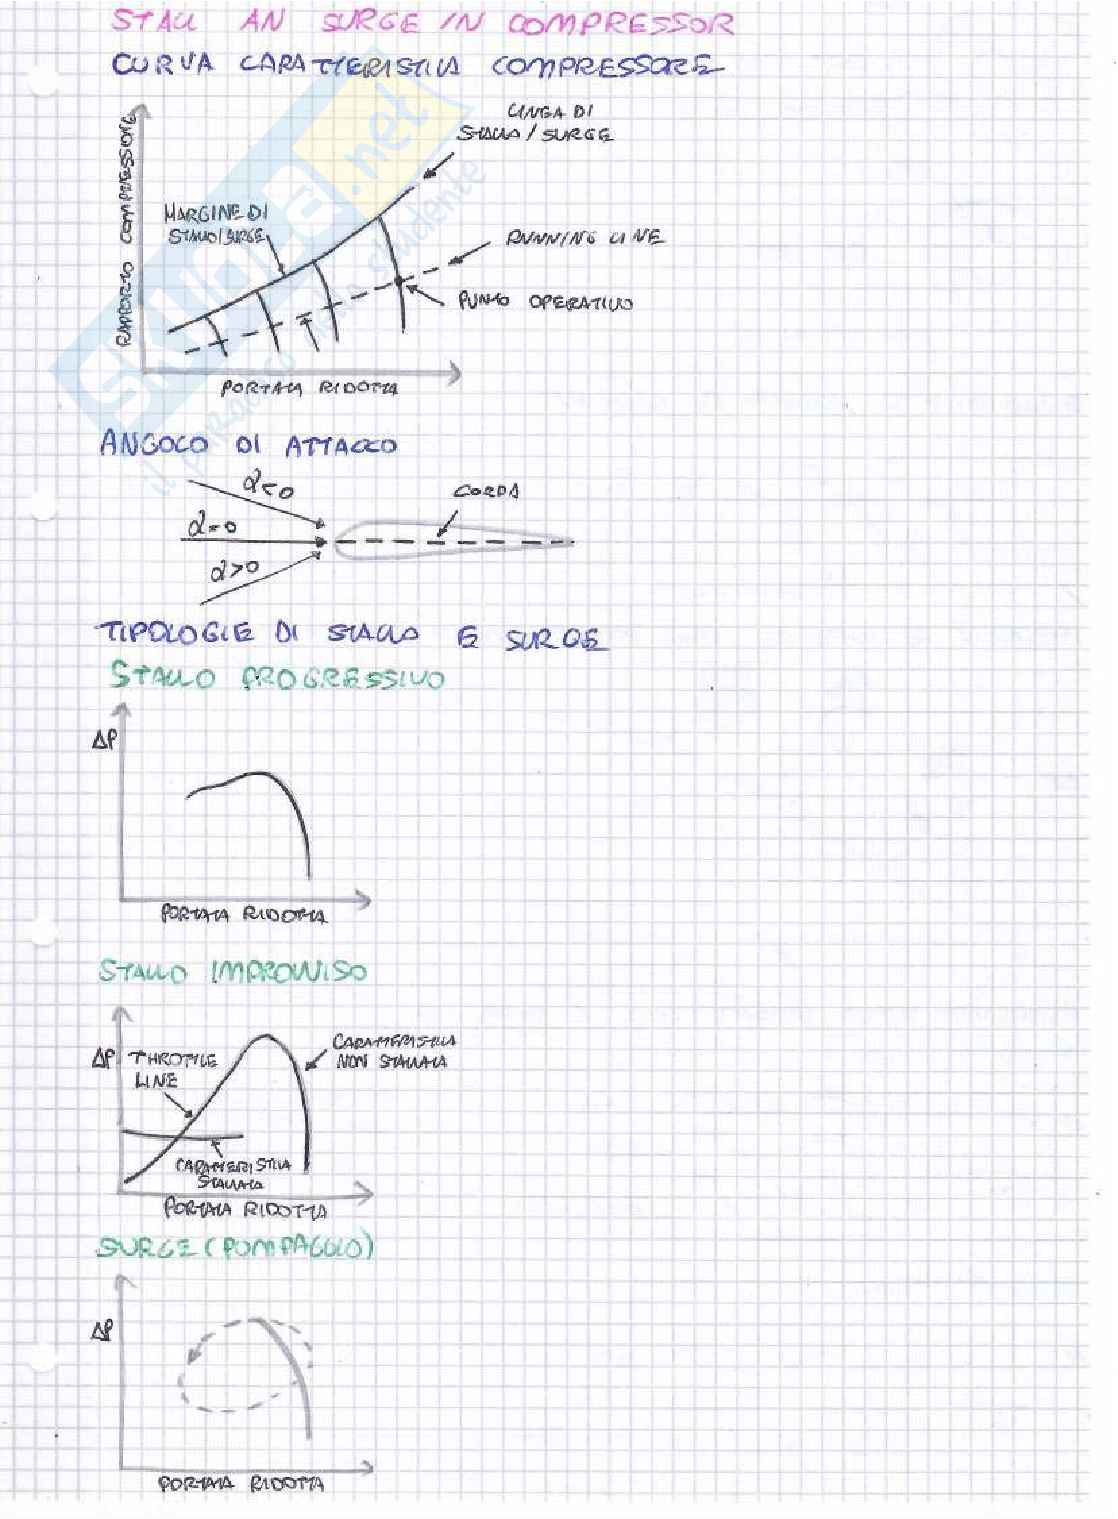 STALL AN SURGE IN COMPRESSOR
CURVA CARATTERISTICA COMPRESSORE
RAPPORTO COMPRESSIONE
LINEA DI
STALLO / SURGE
MARGINE DI
STALLO/SURGE
RUNNING LINE
PUNTO OPERATIVO
PORTATA RIDOTTA
SKUOLA.net
il paradiso dello studente
ANGOLO DI ATTACCO
α<0
α=0
α>0
CORDA
TIPOLOGIE DI STALLO E SURGE
STALLO PROGRESSIVO
ΔP
PORTATA RIDOTTA
STALLO IMPROVVISO
ΔP
THROTTLE
LINE
CARATTERISTICA
NON STALLATA
CARATTERISTICA
STALLATA
PORTATA RIDOTTA
SURGE (POMPAGGIO)
ΔP
PORTATA RIDOTTA